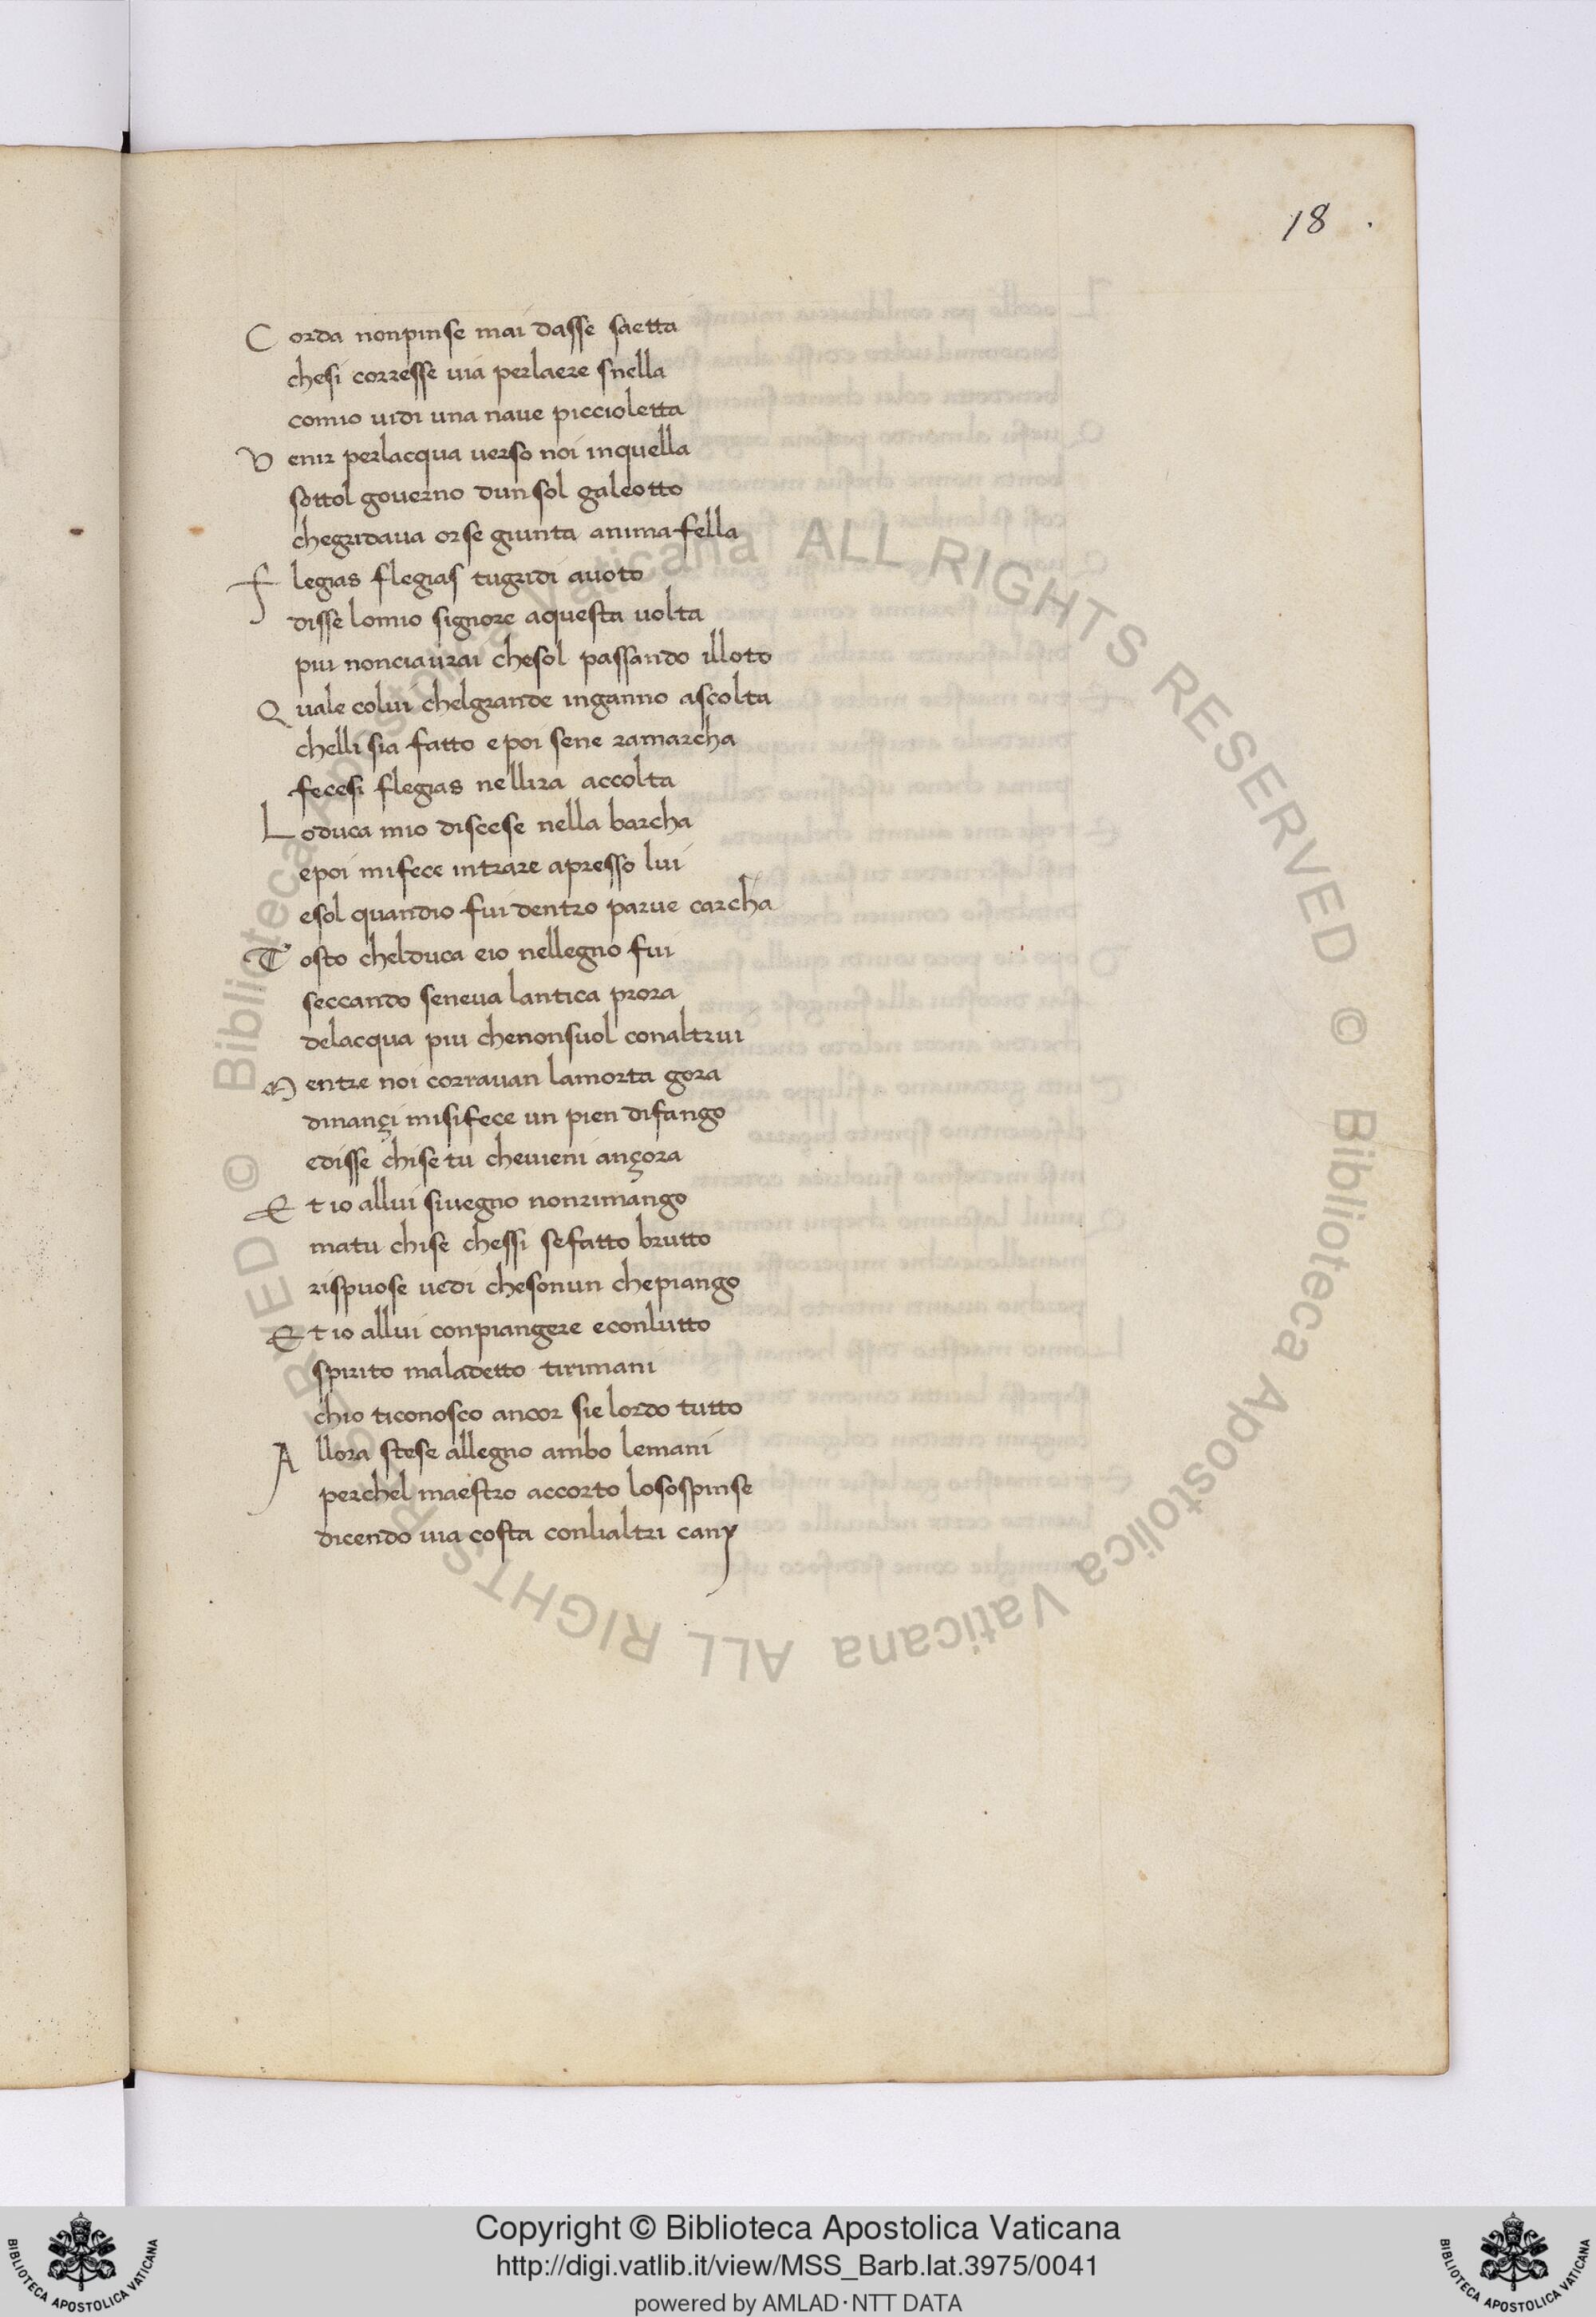 18
C orda nonpinse mai dasse saetta
chesi corresse uia perlaere snella
comio uidi una naue piccioletta
V enir perlacqua uerso noi inquella
sottol gouerno dun sol galeotto
chegridaua orse giunta anima fella
F legias flegias tugridi auoto
disse lomio signore aquesta uolta
piu nonciaurai chesol passando illoto
Q uale colui chelgrande inganno ascolta
chelli sia fatto epoi sene ramarcha
fecesi flegias nellira accolta
L oduca mio discese nella barcha
epoi mifece intrare apresso lui
esol quandio fui dentro parue carcha
T osto chelduca eio nellegno fui
seccando seneua lantica prora
delacqua piu chenonsuol conaltrui
M entre noi corrauan lamorta gora
dinançi misifece un pien difango
edisse chise tu cheuieni ançora
E t io allui siuegno nonrimango
matu chise chessi sefatto brutto
rispuose uedi chesonun chepiango
E t io allui conpiangere econlutto
spirito maladetto tirimani
chio ticonosco ancor sie lordo tutto
A llora stese allegno ambo lemani
perchel maestro accorto losospinse
dicendo uia costa conlialtri cany
© Biblioteca Apostolica Vaticana ALL RIGHTS RESERVED © Biblioteca Apostolica Vaticana ALL RIGHTS RESERVED
Copyright © Biblioteca Apostolica Vaticana
http://digi.vatlib.it/view/MSS_Barb.lat.3975/0041
powered by AMLAD·NTT DATA
BIBLIOTECA APOSTOLICA VATICANA
BIBLIOTECA APOSTOLICA VATICANA